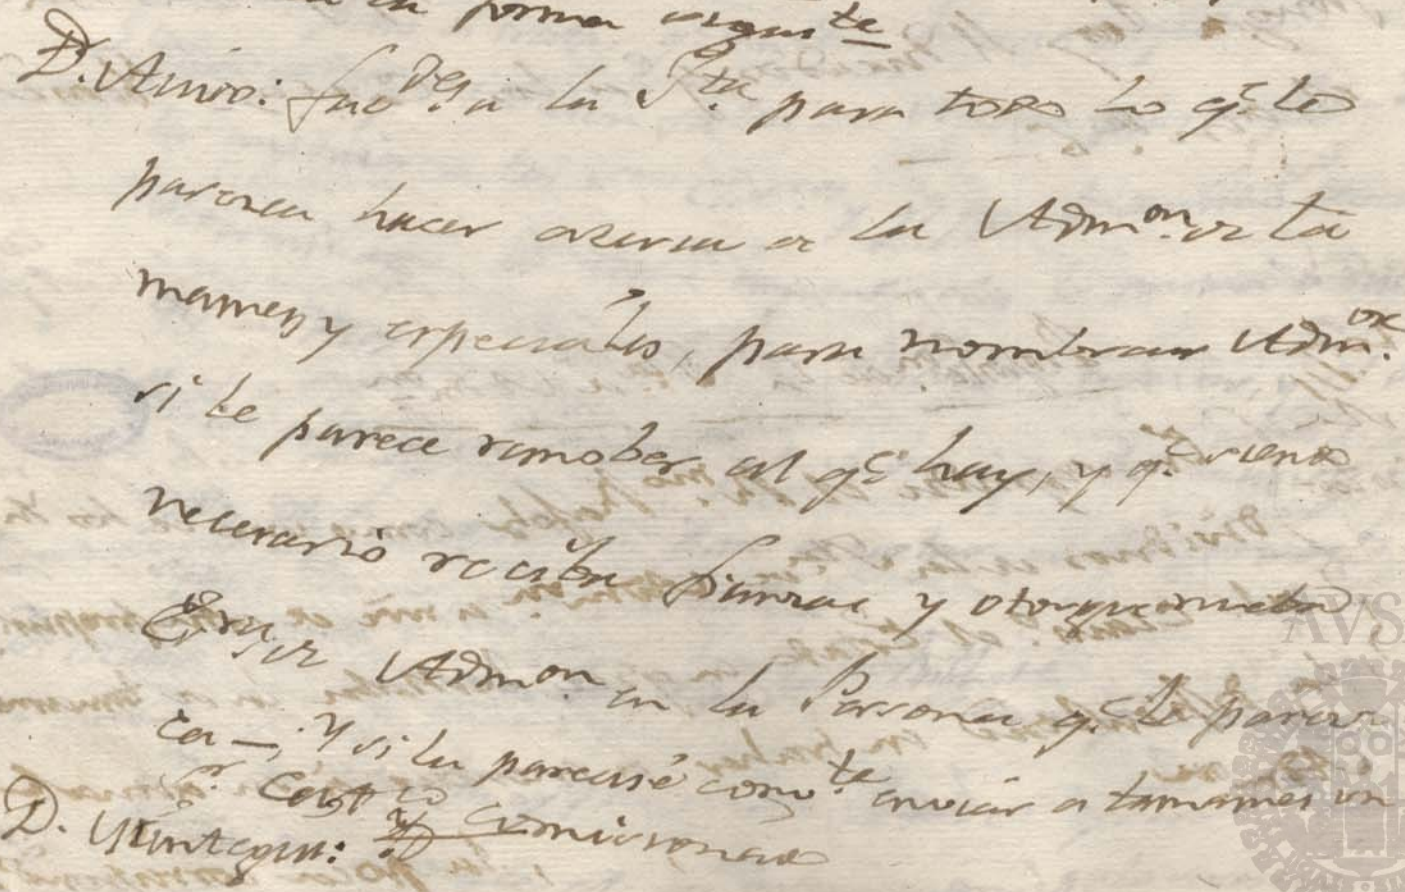 en forma siguiente
D. Amir: fac.des a la Jta. para todo lo q.e le
parezca hacer acerca de la Adm.on de ta
mames y especiales, para nombrar Adm.or
si le parece remober al q.e hay, y q.e siendo
necesario reciba fianzas y otorgue nueba
Escr.ra de Adm.on en la Persona q.e le parez
ca —; Y si la pareciese comb.te enviar a tamames un
Comisionado
D. Yüntegui:
AVSA